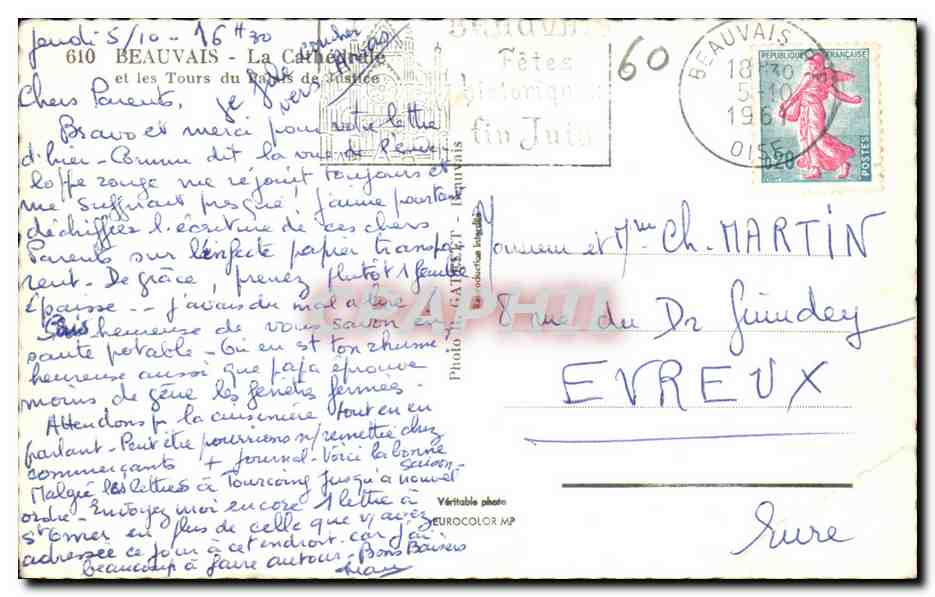 Jeudi 5/10 - 16H30
610 BEAUVAIS - La Cathédrale
et les Tours du Palais de Justice
je vais coucher
vers Arras
Chers Parents,
Bravo et merci pour votre lettre
d'hier - Comme dit la vue de l'enve-
loppe rouge me réjouit toujours et
me suffirait presque, j'aime pourtant
déchiffrer l'écriture de ces chers
Parents sur l'infecte papier transpa
rent - De grâce, prenez plutôt 1 feuille
épaisse -- j'avais du mal à lire
heureuse de vous savoir en
santé potable - Où en est ton rhume
heureuse aussi que papa éprouve
moins de gêne les fenêtres fermées -
Attendons pr la cuisinière tout en en
parlant - Peut être pourrions n/remettre chez
commerçants + journal - Voici la bonne
saison
Malgré les lettres à Tourcoing jusqu'à nouvel
ordre - Envoyez moi encore 1 lettre à
St Omer en plus de celle que v/avez
adressée ce jour à cet endroit car j'ai
beaucoup à faire autour - Bons Baisers
BEAUVAIS
Fêtes
historiques
fin Juin
60
BEAUVAIS
18H30
5-10
196
OISE
REPUBLIQUE FRANÇAISE
0,20
POSTES
Photo GATELET - Beauvais
Reproduction interdite
CPAPHIL
Monsieur et Mme Ch. MARTIN
8 rue du Dr Guindey
EVREUX
Eure
Véritable photo
EUROCOLOR MP